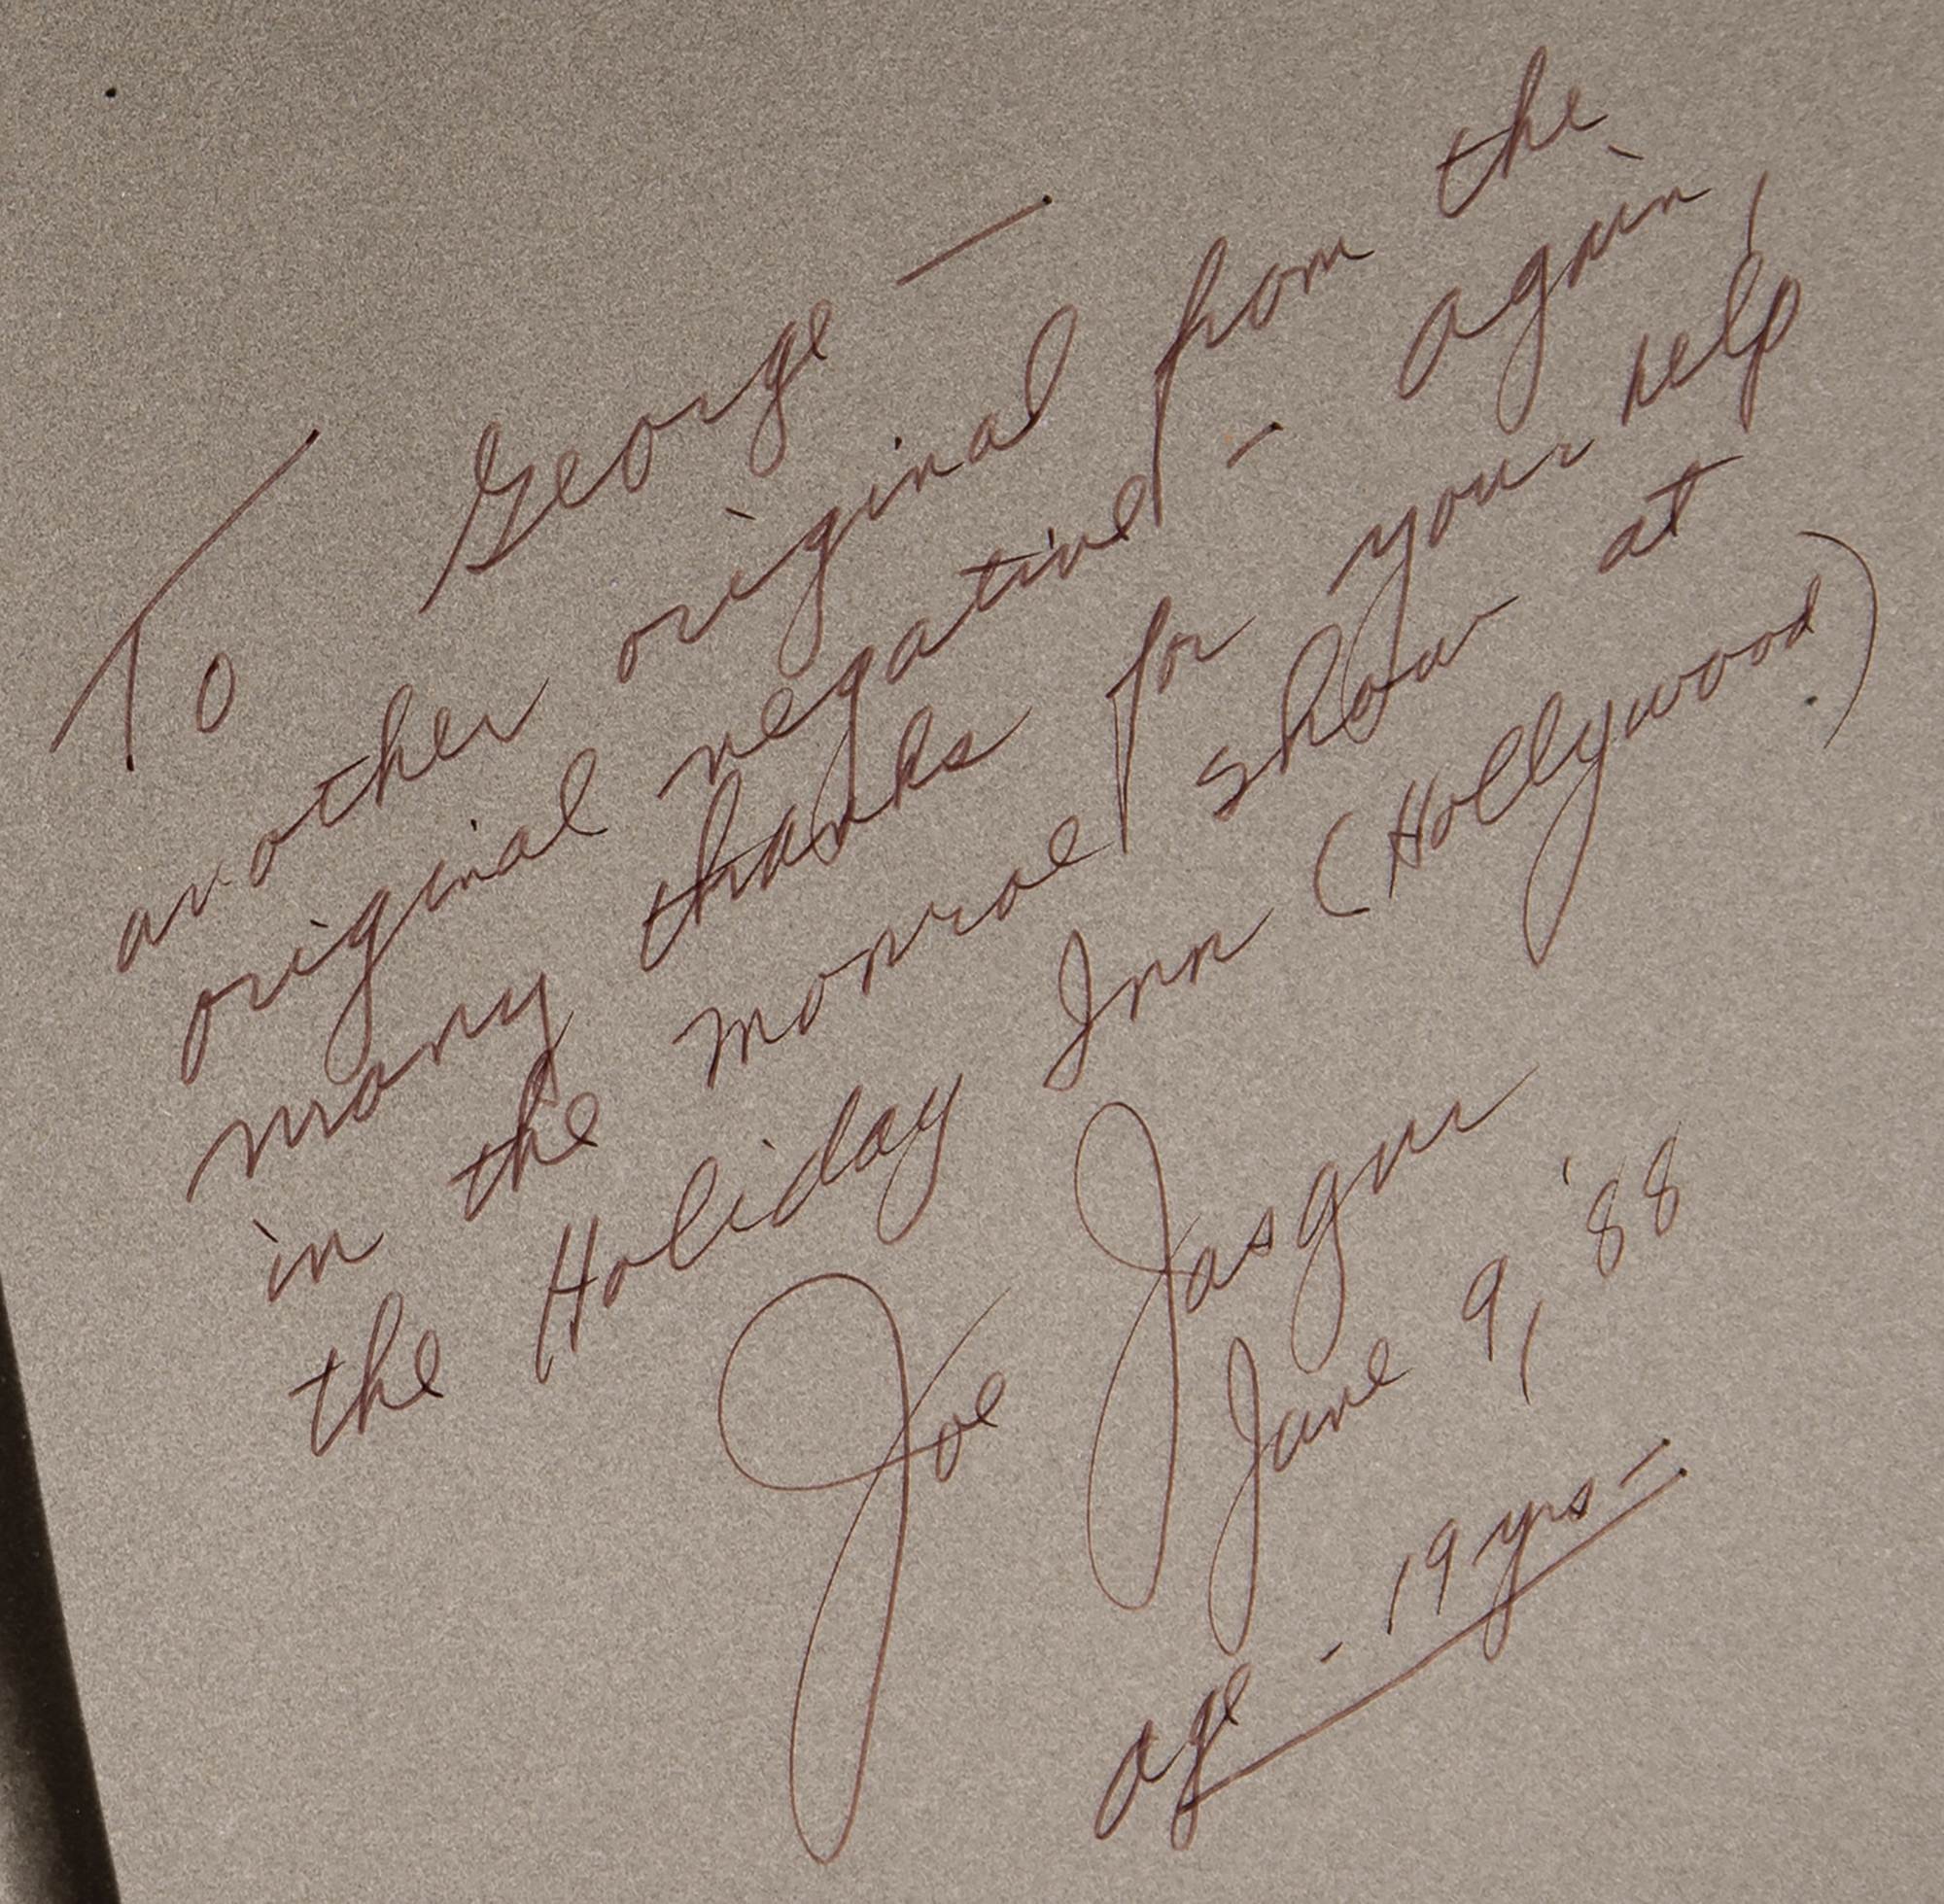 To George —
another original from the
original negative - again,
many thanks for your help
in the Monroe show at
the Holiday Inn (Hollywood.)
Joe Jasgur
June 9, '88
age - 19 yrs -